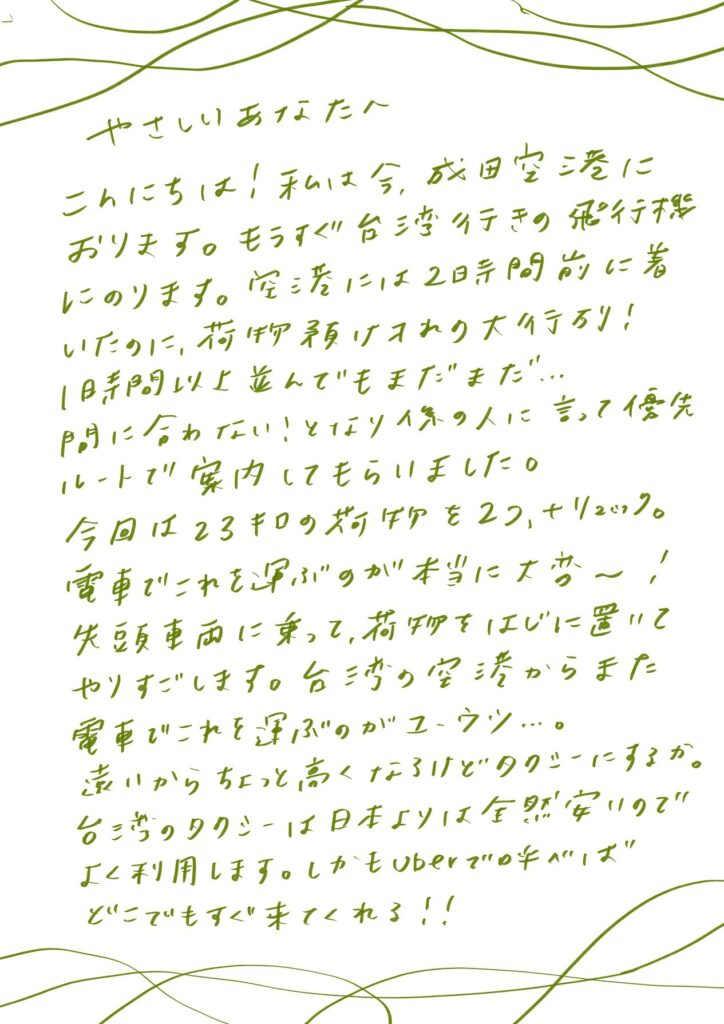 やさしいあなたへ
こんにちは！私は今、成田空港に
おります。もうすぐ台湾行きの飛行機
にのります。空港には2時間前に着
いたのに、荷物預け入れの大行列！
1時間以上並んでもまだまだ…
間に合わない！となり係の人に言って優先
ルートで案内してもらいました。
今回は23キロの荷物を2つ、+リュック。
電車でこれを運ぶのが本当に大変〜！
先頭車両に乗って、荷物をはじに置いて
やりすごします。台湾の空港からまた
電車でこれを運ぶのがユーウツ…。
遠いからちょっと高くなるけどタクシーにするか。
台湾のタクシーは日本よりは全然安いので
よく利用します。しかもuberで呼べば
どこでもすぐ来てくれる！！